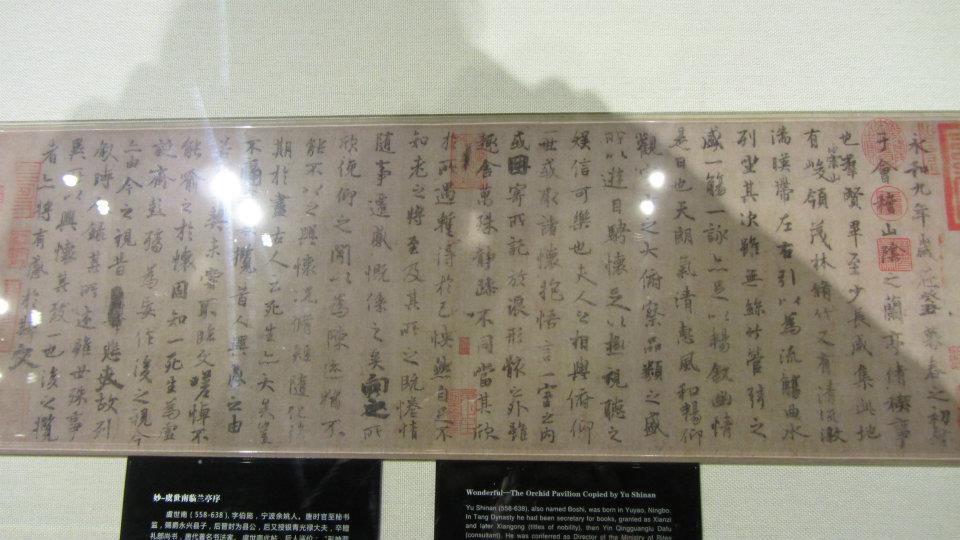 永和九年歲在癸丑暮春之初會
于會稽山陰之蘭亭脩禊事
也羣賢畢至少長咸集此地
有崇山峻領茂林脩竹又有清流激
湍暎帶左右引以為流觴曲水
列坐其次雖無絲竹管弦之
盛一觴一詠亦足以暢敘幽情
是日也天朗氣清惠風和暢仰
觀之大俯察品類之盛
所以遊目騁懷足以極視聽之
娛信可樂也夫人之相與俯仰
一世或取諸懷抱悟言一室之內
或因寄所託放浪形骸之外雖
趣舍萬殊靜躁不同當其欣
於所遇暫得於己怏然自足不
知老之將至及其所之既惓情
隨事遷感慨係之矣向之所
欣俛仰之間以為陳迹猶不
能不以之興懷況脩短隨化終
期於盡古人云死生亦大矣豈
不痛攬昔人興感之由
契未嘗不臨文嗟悼不
能喻之於懷固知一死生為虛
誕齊彭殤為妄作後之視今
亦由今之視昔悲夫故列
敘時人錄其所述雖世殊事
異以興懷其致一也後之攬
者亦將有感於斯文
妙-虞世南临兰亭序
虞世南（558-638），字伯施，宁波余姚人，唐时官至秘书
监，赐爵永兴县子，后晋封为县公，后又授银青光禄大夫，卒赠
礼部尚书，唐代著名书法家，虞世南此帖，后人评价：
Wonderful—The Orchid Pavilion Copied by Yu Shinan
Yu Shinan (558-638), also named Boshi, was born in Yuyao, Ningbo.
In Tang Dynasty he had been secretary for books, granted as Xianzi
and later Xiangong (titles of nobility), then Yin Qingguanglu Dafu
(consultant). He was conferred as Director of the Ministry of Rites